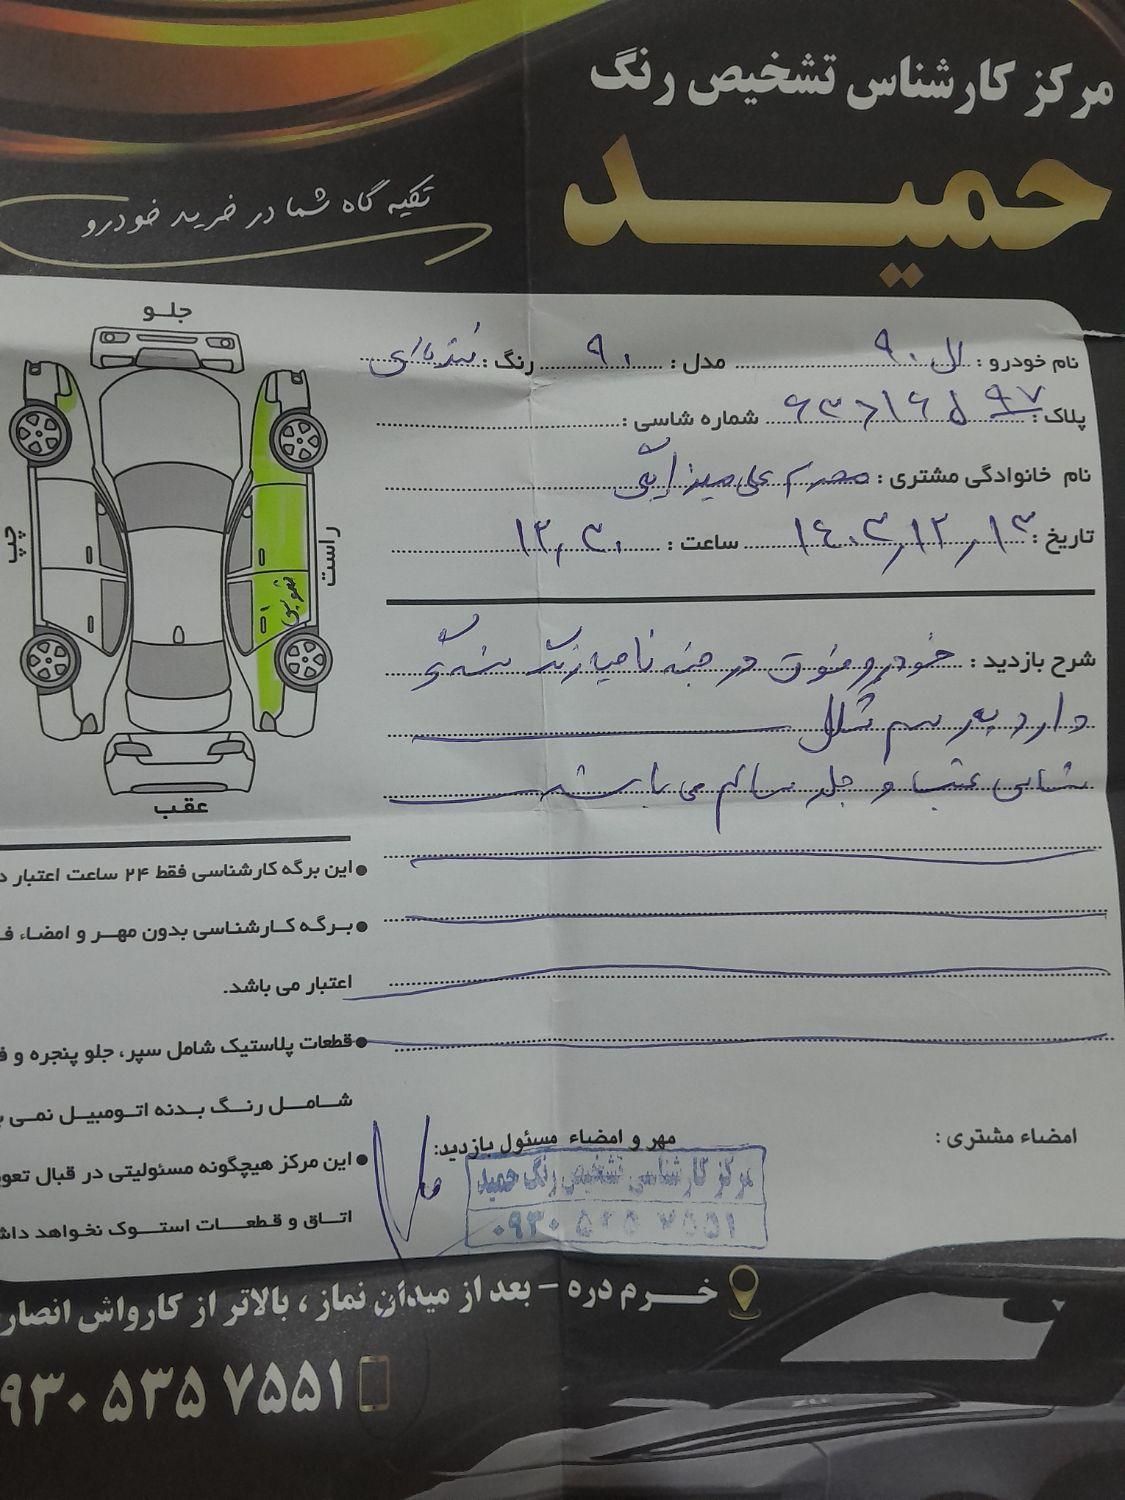 مرکز کارشناس تشخیص رنگ
حمید
تکیه گاه شما در خرید خودرو
نام خودرو : ال ۹۰ مدل : ۹۰ رنگ :
پلاک : ۹۷ شماره شاسی :
نام خانوادگی مشتری : محرم علی میرزایی
تاریخ : ۱۴۰۳/۱۲/۱۳ ساعت : ۱۲,۳۰
شرح بازدید : خودرو فوق در چند ناحیه رنگ شدگی
دارد به رسم شکل
شاسی عقب و جلو سالم می باشد
جلو
راست
چپ
تعویض
عقب
این برگه کارشناسی فقط ۲۴ ساعت اعتبار د
برگه کارشناسی بدون مهر و امضاء ف
اعتبار می باشد.
قطعات پلاستیک شامل سپر، جلو پنجره و ف
شامل رنگ بدنه اتومبیل نمی ب
این مرکز هیچگونه مسئولیتی در قبال تعوی
اتاق و قطعات استوک نخواهد داش
امضاء مشتری :
مهر و امضاء مسئول بازدید:
مرکز کارشناسی تشخیص رنگ حمید
۰۹۳۰ ۵۳۵ ۷۵۵۱
خرم دره - بعد از میدان نماز ، بالاتر از کارواش انصار
۹۳۰ ۵۳۵ ۷۵۵۱